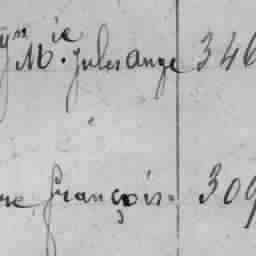 M. Jules Ange 346
re françois. 309